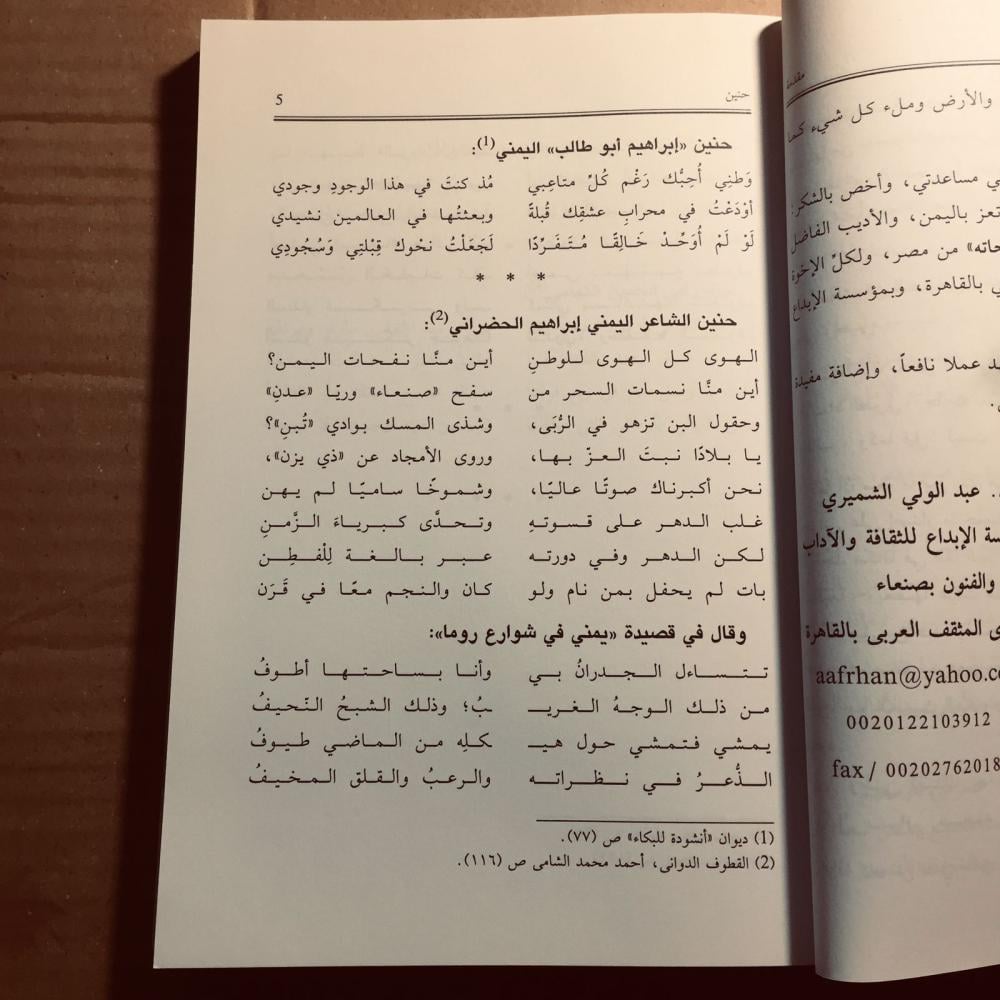 مقدمة
والأرض وملء كل شيء كما
ي مساعدتي، وأخص بالشكر:
تعز باليمن، والأديب الفاضل
حاته» من مصر، ولكلِّ الإخوة
ي بالقاهرة، وبمؤسسة الإبداع
د عملا نافعاً، وإضافة مفيدة
. عبد الولي الشميري
سة الإبداع للثقافة والآداب
والفنون بصنعاء
ى المثقف العربى بالقاهرة
aafrhan@yahoo.co
0020122103912
fax / 00202762018
حنين 5
حنين «إبراهيم أبو طالب» اليمني(1):
وَطنِي أُحِبُّك رَغْم كُلِّ متاعِبي مُذ كنتَ في هذا الوجودِ وجودي
أوْدَعْتُ في محرابِ عشقِك قُبلةً وبعثتُها في العالمين نشيدي
لَوْ لَمْ أُوَحِّدْ خَالِقًا مُتَفَرِّدًا لَجَعَلْتُ نحْوك قِبْلتِي وَسُجُودِي
* * *
حنين الشاعر اليمني إبراهيم الحضراني(2):
الهوى كل الهوى للوطنِ أين منَّا نفحات اليمن؟
أين منَّا نسمات السحر من سفح «صنعاء» وريّا «عدنِ»
وحقول البن تزهو في الرُّبَى، وشذى المسك بوادي «تُبنِ»؟
يا بلادًا نبتَ العزّ بها، وروى الأمجاد عن «ذي يزن»،
نحن أكبرناك صوتًا عاليًا، وشموخًا ساميًا لم يهن
غلب الدهر على قسوتهِ وتحدَّى كبرياءَ الزَّمنِ
لكن الدهر وفي دورته عبر بالغة لِلْفطِن
بات لم يحفل بمن نام ولو كان والنجم معًا في قَرَن
وقال في قصيدة «يمني في شوارع روما»:
تتساءل الجدرانُ بي وأنا بساحتها أطوفُ
من ذلك الوجهُ الغريـ ـبُ؛ وذلك الشبحُ النّحيفُ
يمشي فتمشي حول هيـ ـكلِه من الماضي طيوفُ
الذُّعرُ في نظراته والرعبُ والقلق المخيفُ
(1) ديوان «أنشودة للبكاء» ص (٧٧).
(2) القطوف الدوانى، أحمد محمد الشامى ص (١١٦).